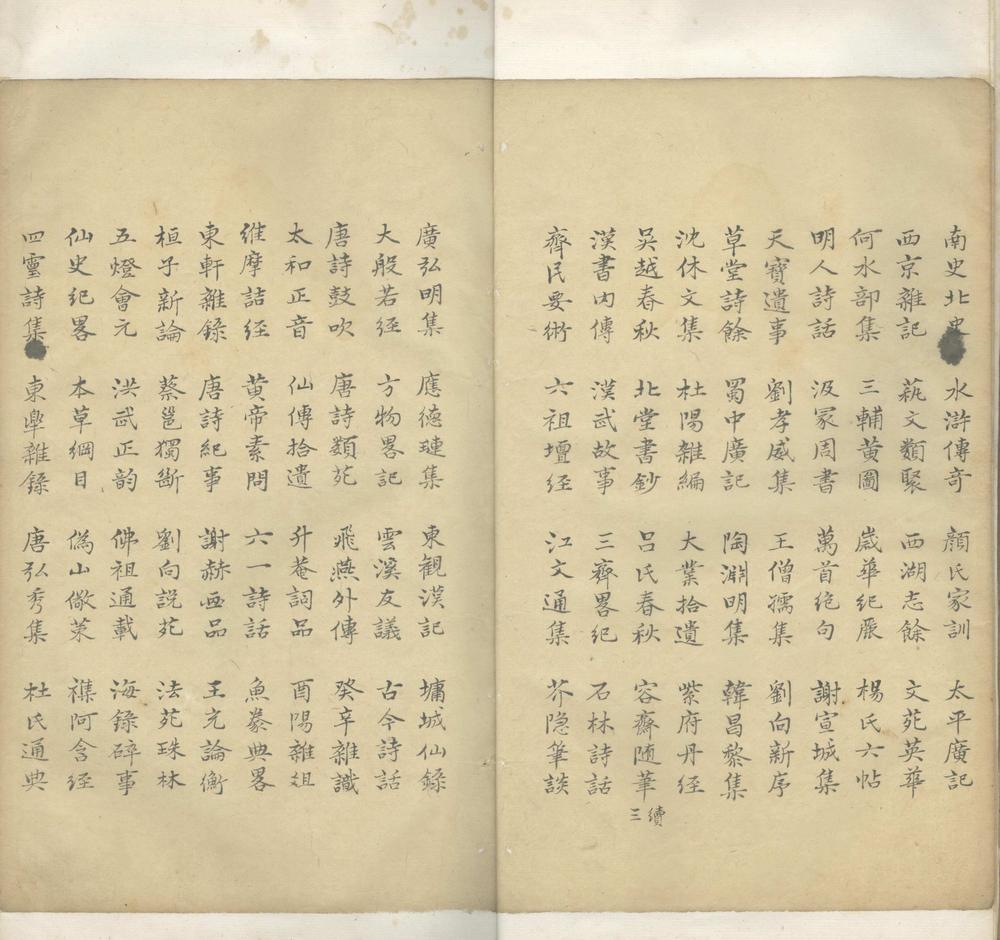 南史北史 水滸傳奇 顔氏家訓 太平廣記
西京雜記 蓺文類聚 西湖志餘 文苑英華
何水部集 三輔黄圖 嵗華紀麗 楊氏六帖
明人詩話 汲冢周書 萬首絶句 謝宣城集
天寶遺事 劉孝威集 王僧孺集 劉向新序
草堂詩餘 蜀中廣記 陶淵明集 韓昌黎集
沈休文集 杜陽雜編 大業拾遺 紫府丹經
吳越春秋 北堂書鈔 吕氏春秋 容齋随筆 續三
漢書内傳 漢武故事 三齊畧紀 石林詩話
齊民要術 六祖壇经 江文通集 芥隐筆談
廣弘明集 應德璉集 東觀漢記 墉城仙錄
大般若经 方物畧記 雲溪友議 古今詩話
唐詩鼓吹 唐詩類苑 飛燕外傳 癸辛雜識
太和正音 仙傳拾遺 升菴詞品 酉陽雜俎
維摩詰经 黄帝素問 六一詩話 魚豢典畧
東軒雜錄 唐詩紀事 謝赫画品 王充論衡
桓子新論 蔡邕獨斷 劉向説苑 法苑珠林
五燈會元 洪武正韵 佛祖通載 海錄碎事
仙史紀畧 本草綱目 僞山儆策 襍阿含经
四靈詩集 東臯雜錄 唐弘秀集 杜氏通典